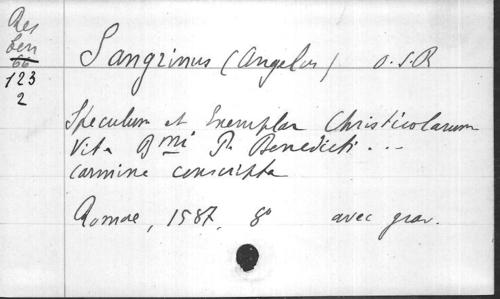 Res
Len
66
123
2
Sangrinus (Angelus) O.S.B
Speculum et Exemplar Christicolarum
Vita Bmi P. Benedicti ...
carmine conscripta
Romae, 1587, 8° avec grav.